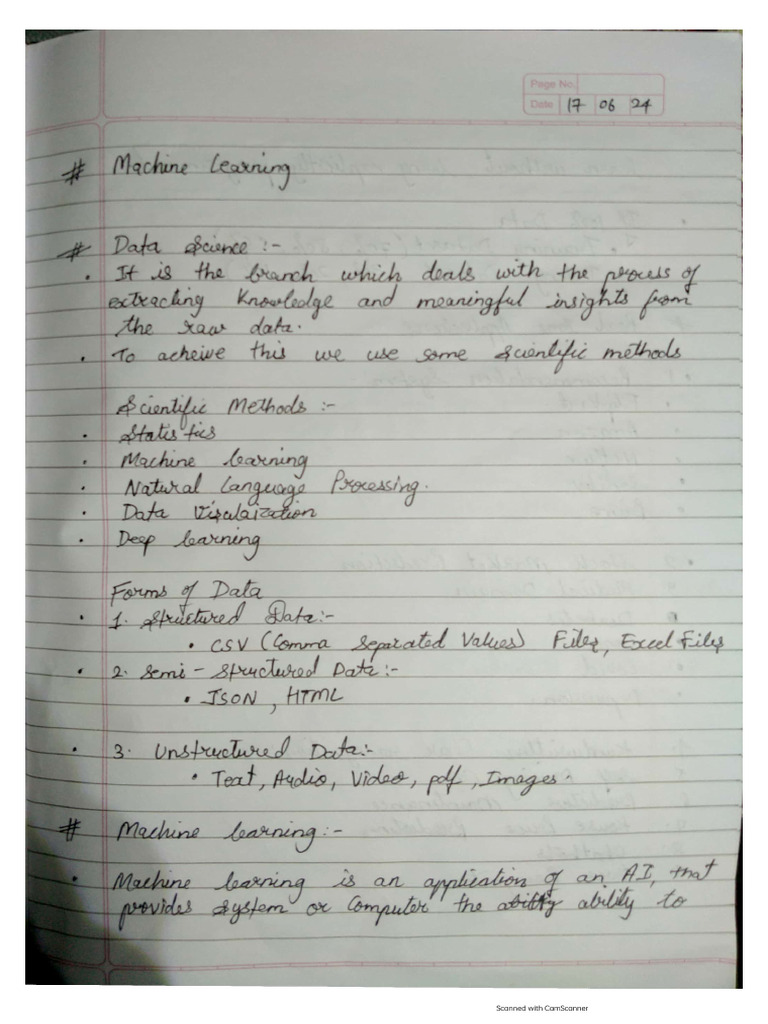 Page No.
Date 17 06 24
# Machine Learning
# Data Science :-
• It is the branch which deals with the process of
extracting Knowledge and meaningful insights from
the raw data.
• To acheive this we use some scientific methods
Scientific Methods :-
• Statistics
• Machine learning
• Natural Language Processing.
• Data Visulaization
• Deep learning
Forms of Data
• 1. Structured Data:-
• CSV (Comma Separated Values) Files, Excel Files
• 2. Semi - Structured Data:-
• JSON , HTML
• 3. Unstructured Data:-
• Text, Audio, Video, pdf, Images.
# Machine learning:-
• Machine learning is an application of an AI, that
provides system or Computer the ability to
Scanned with CamScanner